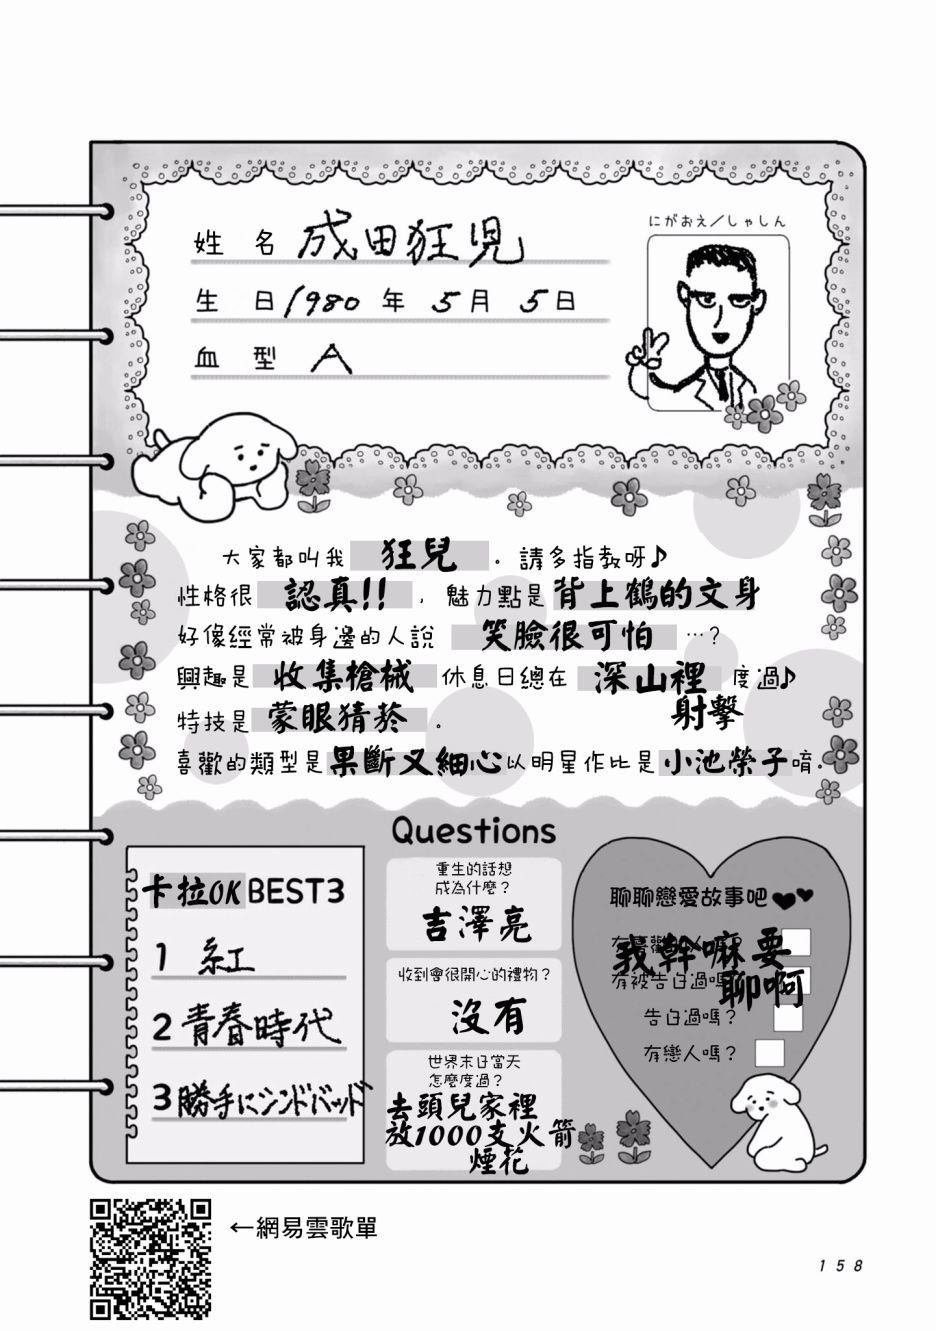 姓 名 成田狂児
にがおえ/しゃしん
生 日 1980 年 5月 5日
血 型 A
大家都叫我 狂兒 。請多指教呀♪
性格很 認真!! ，魅力點是 背上鶴的文身
好像經常被身邊的人說 笑臉很可怕 …?
興趣是 收集槍械 休息日總在 深山裡 度過♪
射擊
特技是 蒙眼猜菸 。
喜歡的類型是 果斷又細心 以明星作比是 小池榮子 唷。
Questions
卡拉OK BEST3
1 紅
2 青春時代
3 勝手にシンドバッド
重生的話想
成為什麼?
吉澤亮
收到會很開心的禮物?
沒有
世界末日當天
怎麼度過?
去頭兒家裡
放1000支火箭
煙花
聊聊戀愛故事吧
我幹嘛要
聊啊
有被告白過嗎
告白過嗎?
有戀人嗎?
←網易雲歌單
158